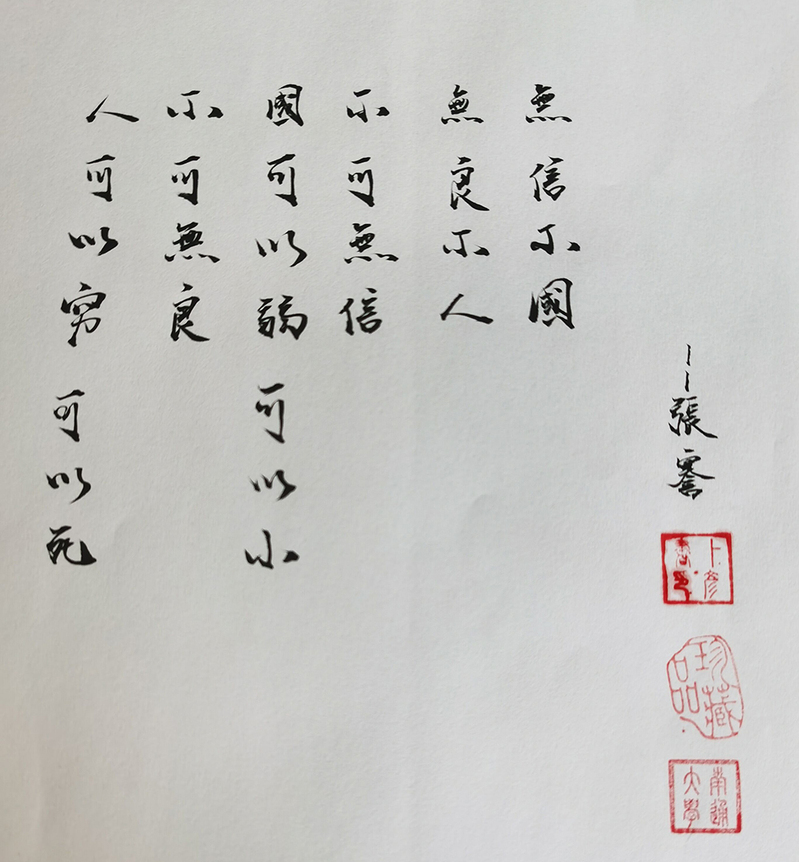 人可以穷 可以死
不可無良
國可以弱 可以小
不可無信
無良不人
無信不國
——張謇
珍藏品
南通大學